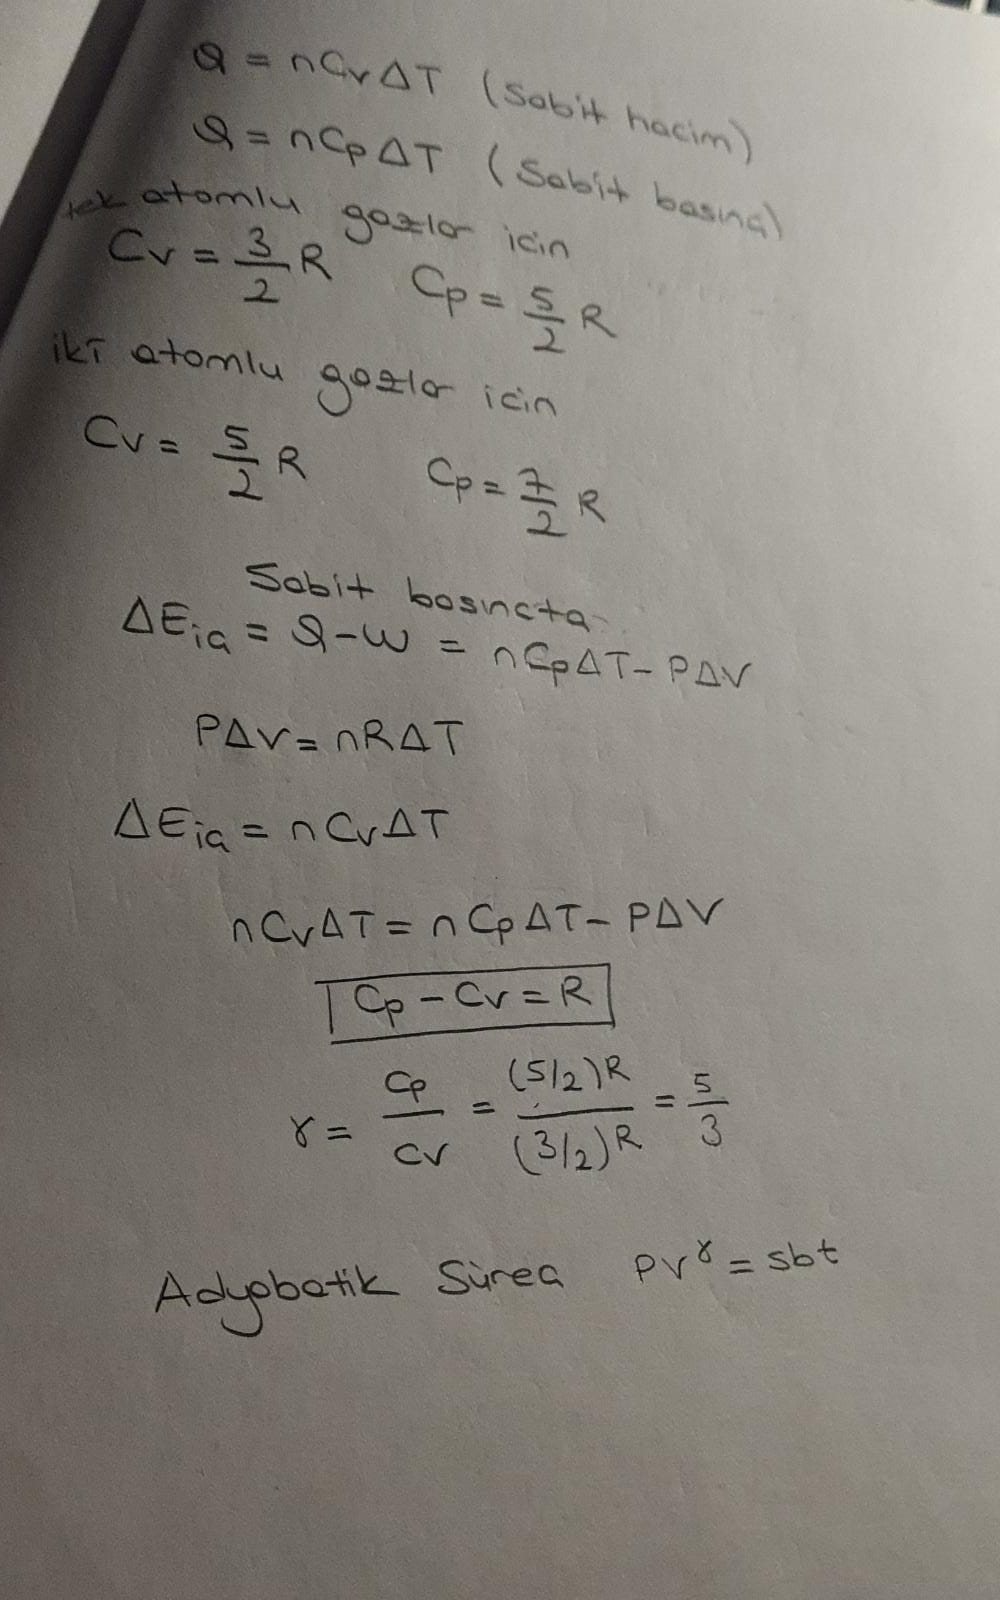 Q = nCvΔT (Sabit hacim)
Q = nCpΔT (Sabit basınç)
tek atomlu gazlar icin
Cv = 3/2 R Cp = 5/2 R
iki atomlu gazlar icin
Cv = 5/2 R Cp = 7/2 R
Sabit basıncta
ΔEiç = Q-W = nCpΔT - PΔV
PΔV = nRΔT
ΔEiç = nCvΔT
nCvΔT = nCpΔT - PΔV
Cp - Cv = R
γ = Cp/Cv = (5/2)R/(3/2)R = 5/3
Adyabatik Süreç PV^γ = sbt